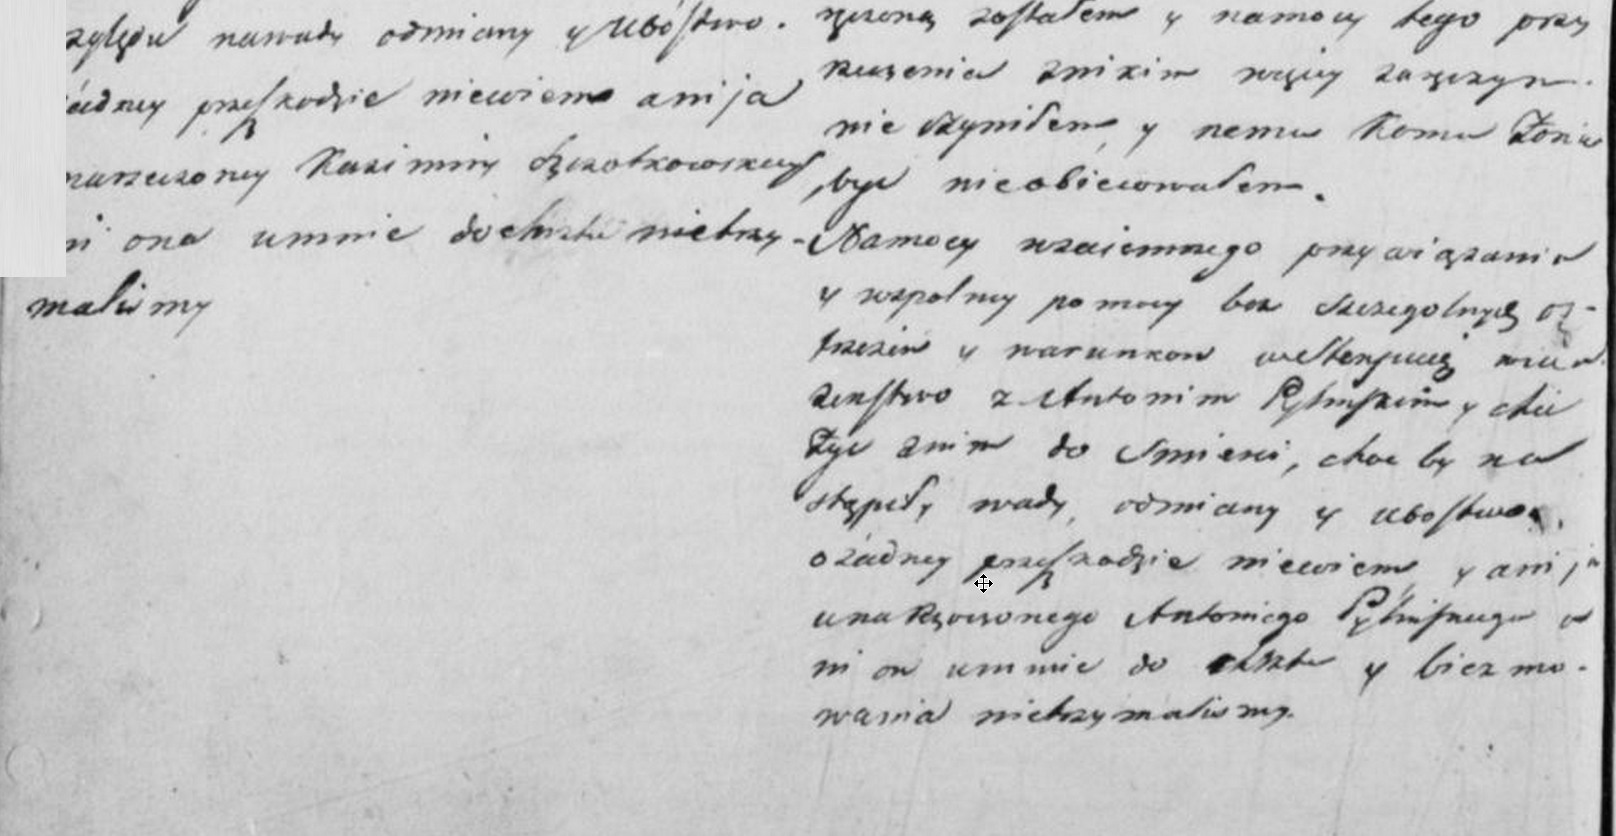 względu nawady odmiany y Ubóstwo.
żadney przeszkodzie niewiem ani ja
narzeczoney Kazimiry
ni ona umnie do chrztu nietrzy-
malismy
rzczoną zostałem y namocy tego przy
rzeczenia znikim więcy zaręczyn
nie czyniłem, y nemu Komu Żoną
być nieobiecowałem.
Namocy wzaiemnego przywiązania
y wspolney pomocy bez szczegolnych
y warunkow mał
zenstwo z Antonim y chce
Żyć znim do Smierci, choc by na
stąpiły wady, odmiany y ubostwo,
o żadney przeszkodzie niewiem y ani ja
unarzeczonego Antoniego a
ni on umnie do chrztu y bierzmo-
wania nietrzymalismy.